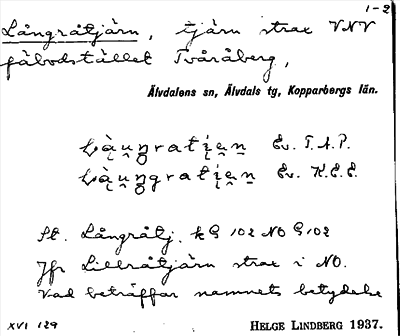 1-2
Långråtjärn, tjärn strax VNV
fäbodstället Tvåråberg,
Älvdalens sn, Älvdals tg, Kopparbergs län.
Ev. T.A.P.
Ev. K.E.E.
St. Långråtj. kG 102 NO G 102
Jfr Lillråtjärn strax i NO.
Vad beträffar namnets betydelse
XVI 129 HELGE LINDBERG 1937.